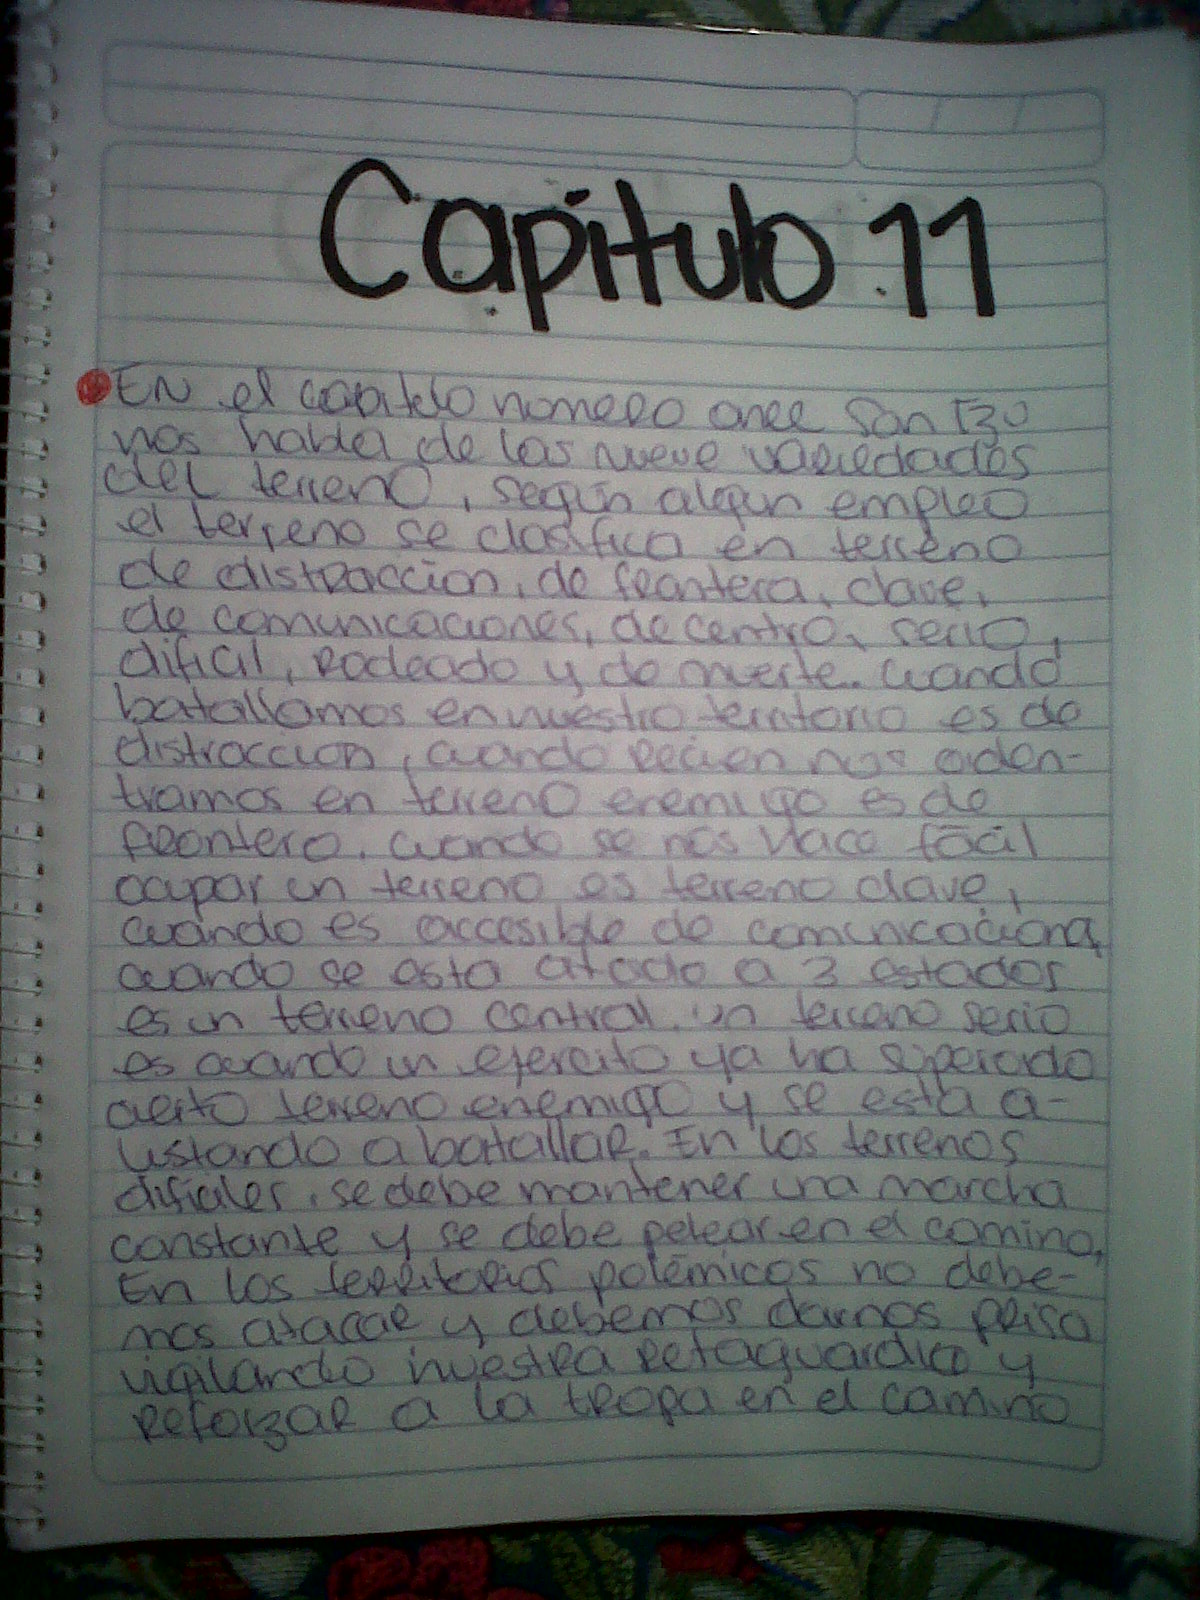 Capitulo 11
EN el capitulo nomero once San Tzu
nos habla de las nueve variedades
del terreno, según algun empleo
el terreno se clasifica en terreno
de distraccion, de frontera, clave,
de comunicaciones, de centro, serio,
dificil, rodeado y de muerte. cuando
batallamos en nuestro territorio es de
distraccion, cuando recien nos aden-
tramos en terreno enemigo es de
frontera. cuando se nos hace fácil
ocupar un terreno es terreno clave,
cuando es accesible de comunicaciona,
cuando se esta atado a 3 estados
es un terreno central. un terreno serio
es cuando un ejercito ya ha superado
cierto terreno enemigo y se esta a-
listando a batallar. En los terrenos
dificiles, se debe mantener una marcha
constante y se debe pelear en el camino,
En los territorios polémicos no debe-
mos atacar y debemos darnos prisa
vigilando nuestra retaguardia y
reforzar a la tropa en el camino